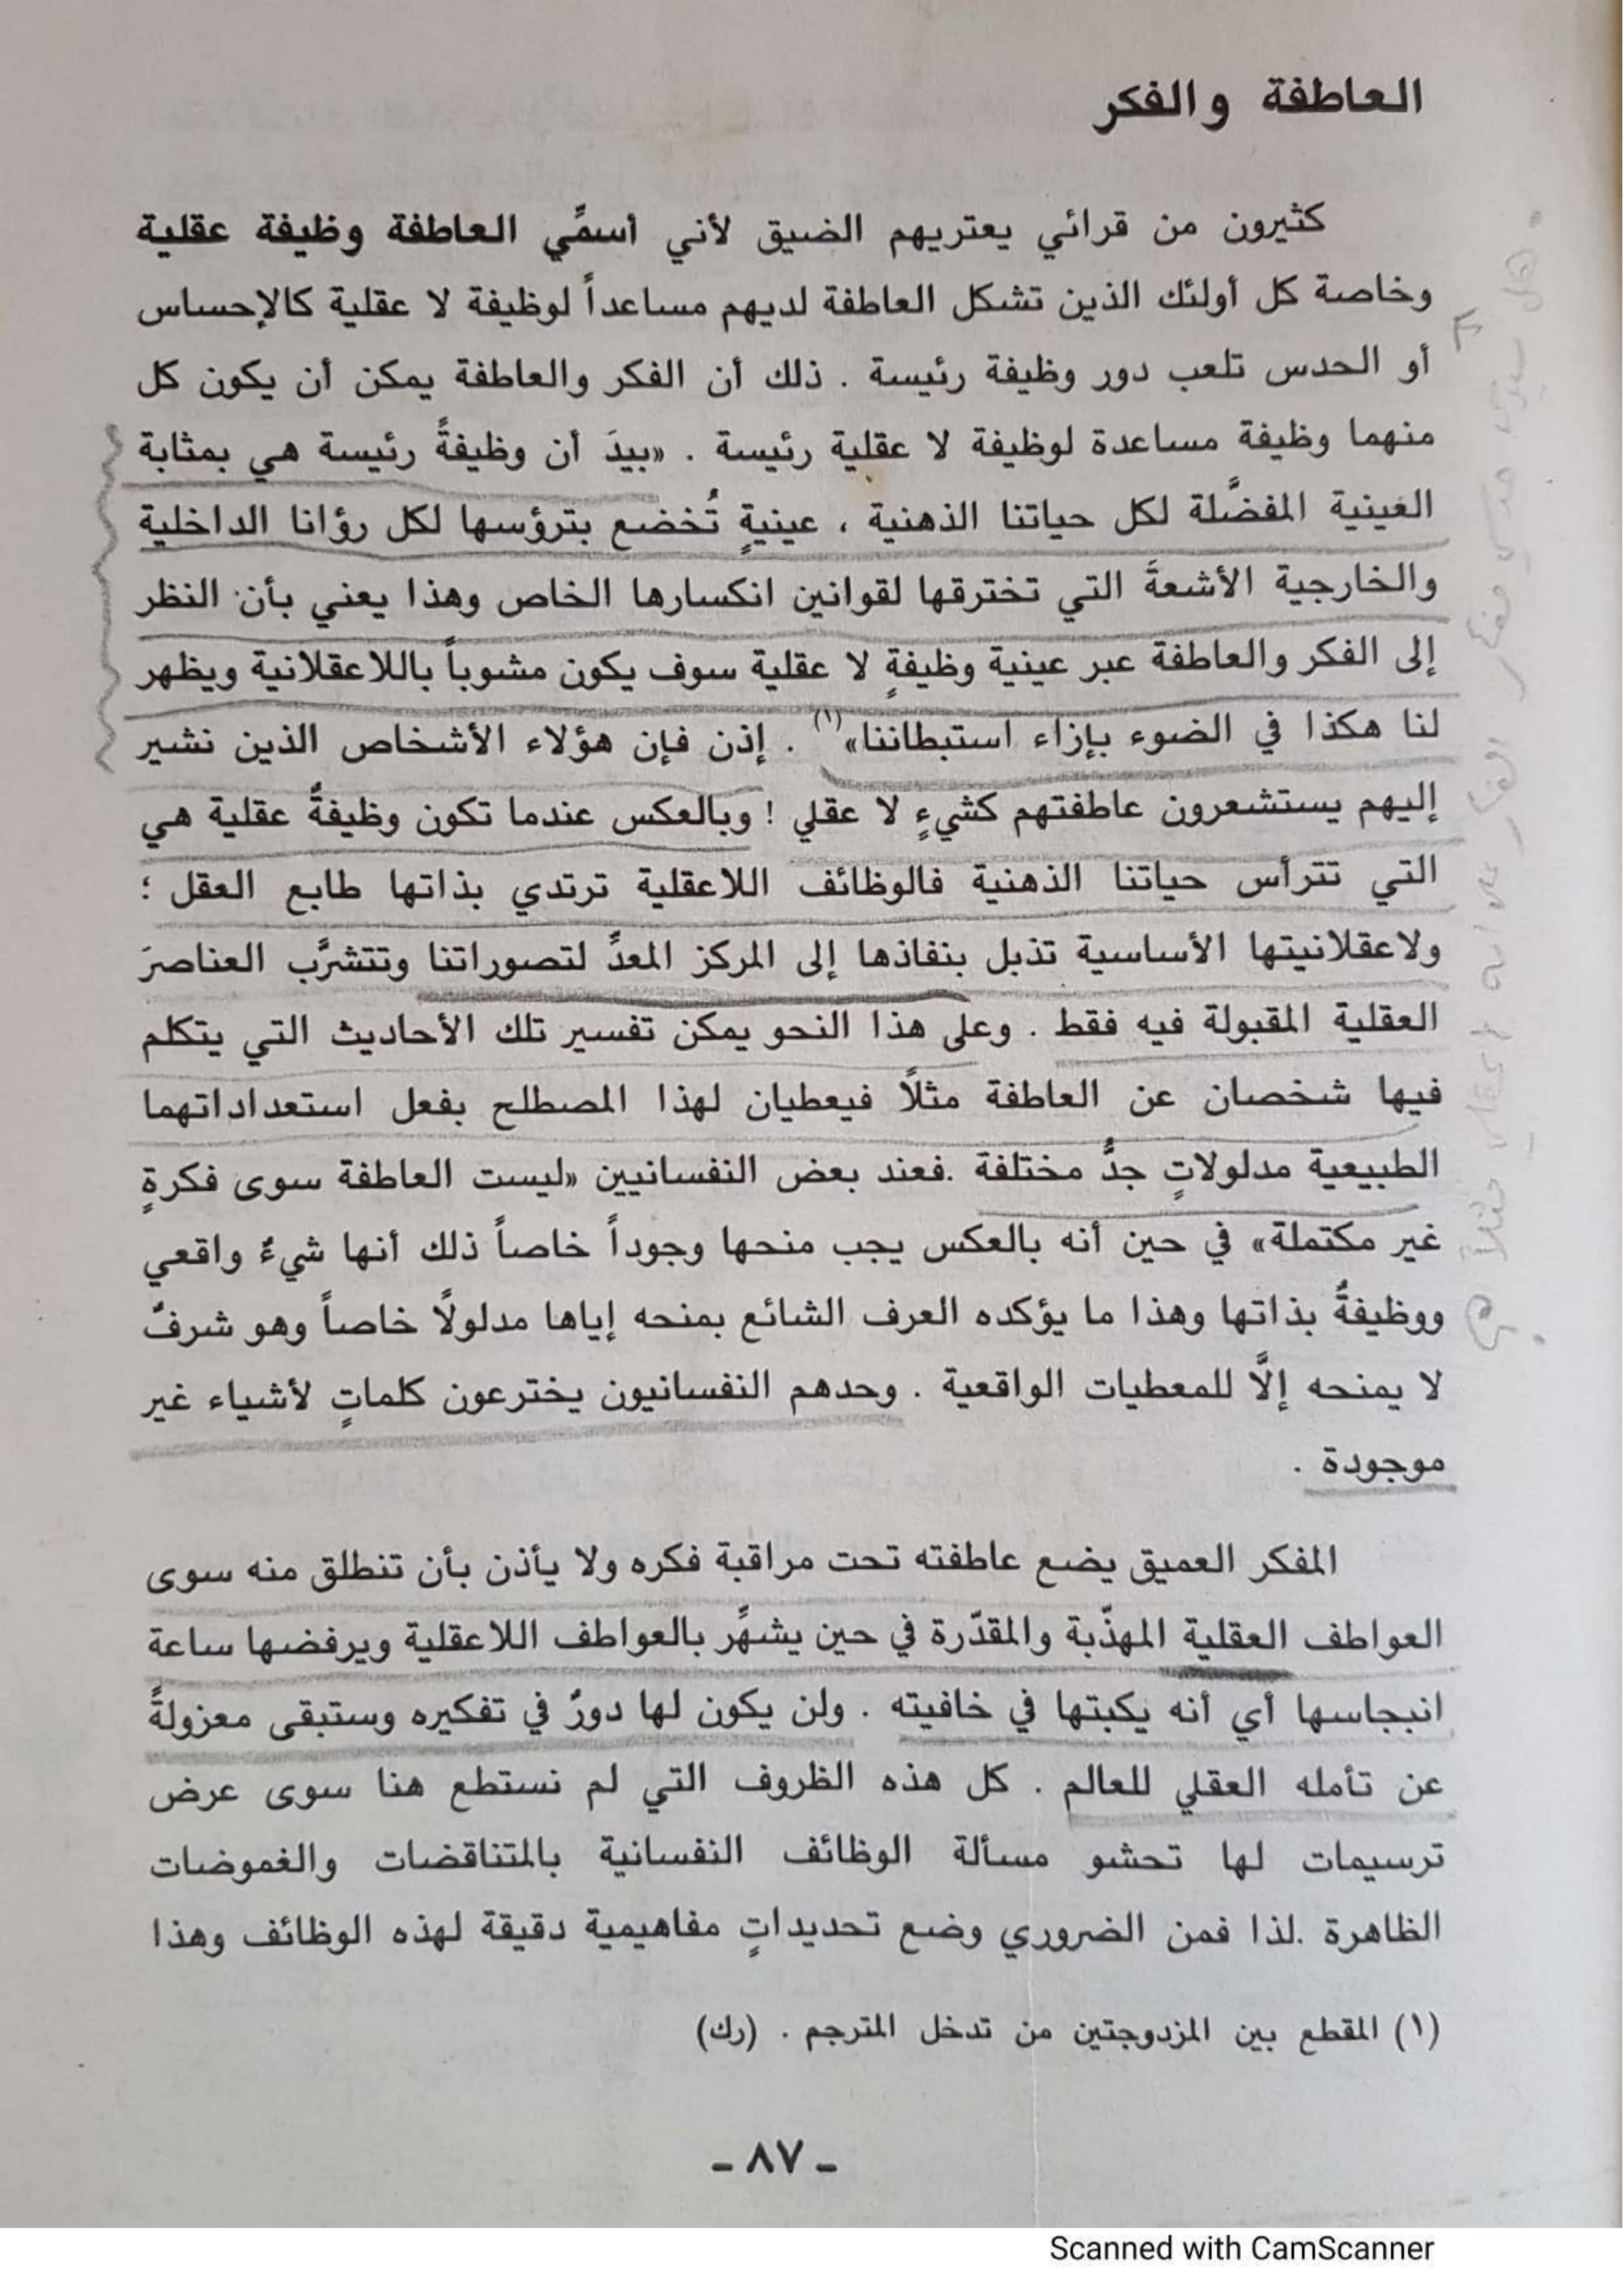 العاطفة والفكر
كثيرون من قرائي يعتريهم الضيق لأني أسمِّي العاطفة وظيفة عقلية
وخاصة كل أولئك الذين تشكل العاطفة لديهم مساعداً لوظيفة لا عقلية كالإحساس
أو الحدس تلعب دور وظيفة رئيسة . ذلك أن الفكر والعاطفة يمكن أن يكون كل
منهما وظيفة مساعدة لوظيفة لا عقلية رئيسة . «بيدَ أن وظيفةً رئيسة هي بمثابة
العينية المفضَّلة لكل حياتنا الذهنية ، عينيةٍ تُخضع بترؤسها لكل رؤانا الداخلية
والخارجية الأشعةَ التي تخترقها لقوانين انكسارها الخاص وهذا يعني بأن النظر
إلى الفكر والعاطفة عبر عينية وظيفةٍ لا عقلية سوف يكون مشوباً باللاعقلانية ويظهر
لنا هكذا في الضوء بإزاء استبطاننا»(١) . إذن فإن هؤلاء الأشخاص الذين نشير
إليهم يستشعرون عاطفتهم كشيءٍ لا عقلي ! وبالعكس عندما تكون وظيفةٌ عقلية هي
التي تترأس حياتنا الذهنية فالوظائف اللاعقلية ترتدي بذاتها طابع العقل ؛
ولاعقلانيتها الأساسية تذبل بنفاذها إلى المركز المعدِّ لتصوراتنا وتتشرَّب العناصرَ
العقلية المقبولة فيه فقط . وعلى هذا النحو يمكن تفسير تلك الأحاديث التي يتكلم
فيها شخصان عن العاطفة مثلًا فيعطيان لهذا المصطلح بفعل استعداداتهما
الطبيعية مدلولاتٍ جدُّ مختلفة .فعند بعض النفسانيين «ليست العاطفة سوى فكرةٍ
غير مكتملة» في حين أنه بالعكس يجب منحها وجوداً خاصاً ذلك أنها شيءٌ واقعي
ووظيفةٌ بذاتها وهذا ما يؤكده العرف الشائع بمنحه إياها مدلولًا خاصاً وهو شرفٌ
لا يمنحه إلَّا للمعطيات الواقعية . وحدهم النفسانيون يخترعون كلماتٍ لأشياء غير
موجودة .
المفكر العميق يضع عاطفته تحت مراقبة فكره ولا يأذن بأن تنطلق منه سوى
العواطف العقلية المهذّبة والمقدّرة في حين يشهِّر بالعواطف اللاعقلية ويرفضها ساعة
انبجاسها أي أنه يكبتها في خافيته . ولن يكون لها دورٌ في تفكيره وستبقى معزولةً
عن تأمله العقلي للعالم . كل هذه الظروف التي لم نستطع هنا سوى عرض
ترسيمات لها تحشو مسألة الوظائف النفسانية بالمتناقضات والغموضات
الظاهرة .لذا فمن الضروري وضع تحديداتٍ مفاهيمية دقيقة لهذه الوظائف وهذا
(١) المقطع بين المزدوجتين من تدخل المترجم . (رك)
- ٨٧ -
Scanned with CamScanner